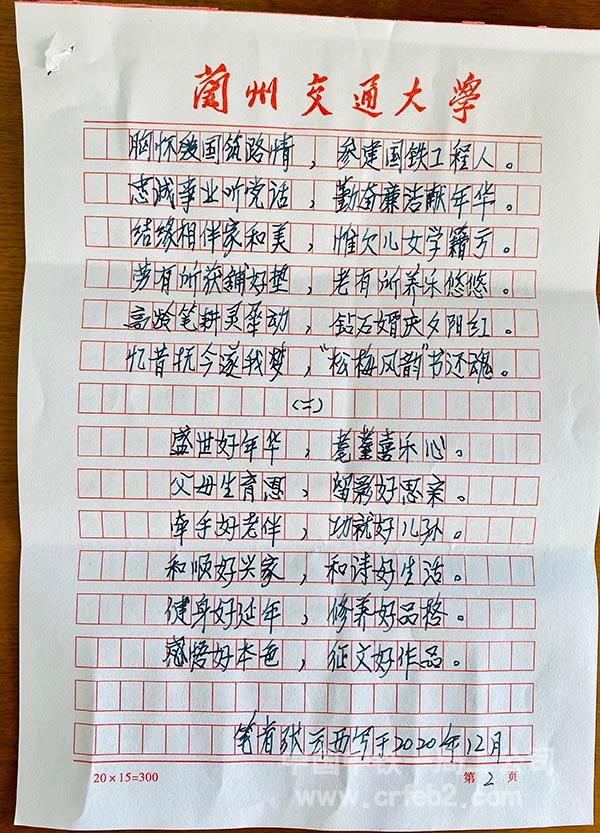 蘭州交通大學
胸怀爱国筑路情，参建国铁工程人。
忠诚事业听党话，勤奋廉洁献年华。
结缘相伴家和美，惟欠儿女学籍亏。
劳有所获铺好垫，老有所养乐悠悠。
高龄笔耕灵犀动，钻石婚庆夕阳红。
忆昔抚今遂我梦，“松梅风韵”书还魂。
(二)
盛世好年华，耄耋喜乐心。
父母生育恩，留影好思亲。
牵手好老伴，功就好儿孙。
和顺好兴家，和诗好生活。
健身好延年，修养好品格。
感悟好本色，征文好作品。
笔者张云西写于2020年12月
20×15=300 第2页
www.crfeb2.com